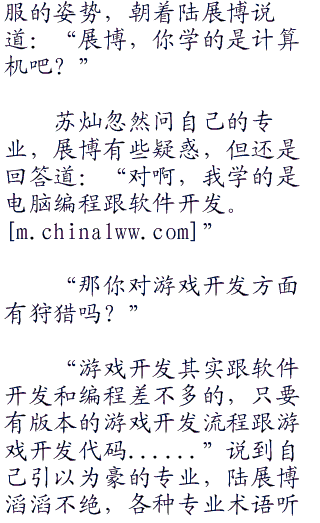 服的姿势，朝着陆展博说
道：“展博，你学的是计算
机吧？”
苏灿忽然问自己的专
业，展博有些疑惑，但还是
回答道：“对啊，我学的是
电脑编程跟软件开发。
[m.chinalww.com]”
“那你对游戏开发方面
有狩猎吗？”
“游戏开发其实跟软件
开发和编程差不多的，只要
有版本的游戏开发流程跟游
戏开发代码......”说到自
己引以为豪的专业，陆展博
滔滔不绝，各种专业术语听